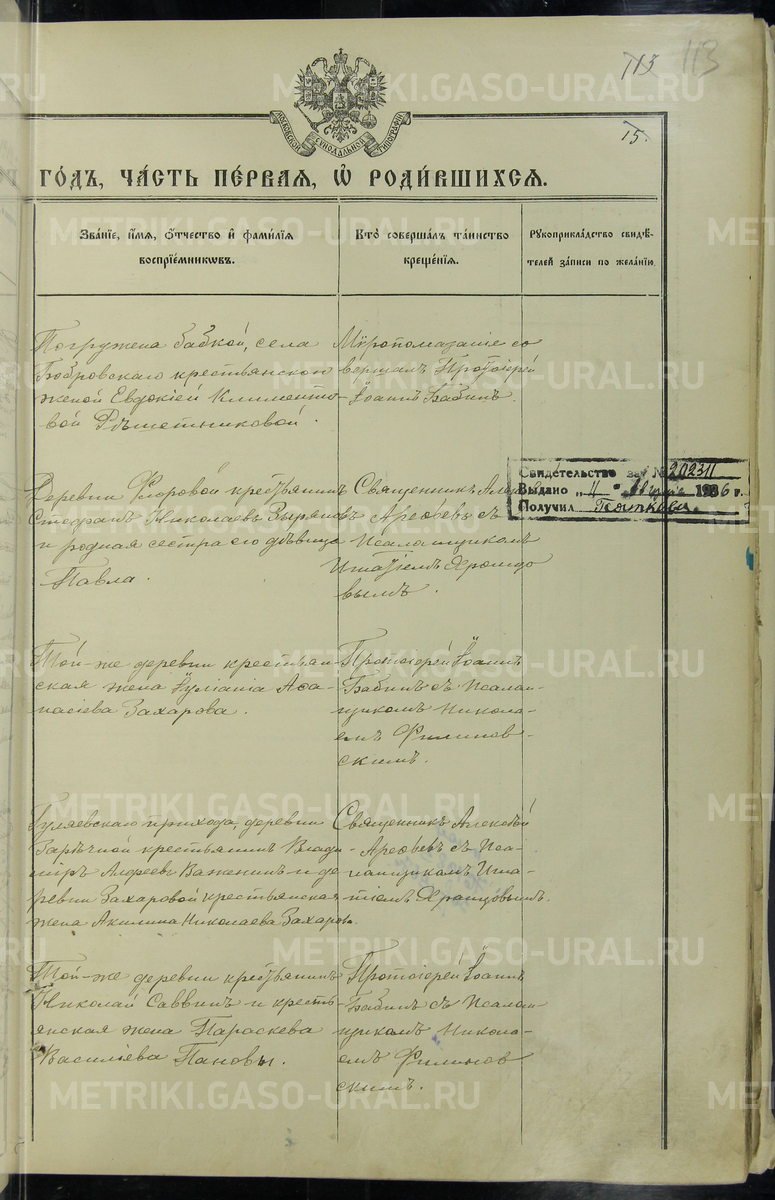 113 113
МОСКОВСКОЙ СѴНОДАЛЬНОЙ ТИПОГРАФІИ
15.
ГО́ДЪ, ЧА́СТЬ ПЕ́РВАЯ, Ѿ РОДИ́ВШИХСЯ.
Зва́нїе, и́мя, о́тчество и҆ фами́лїя
воспрїе́мниковъ.
Кто̀ соверша́лъ та́инство
креще́нїя.
Рꙋкоприкла́дство свидѣ́-
телей за́писи по жела́нїю.
Погружена бабкой, села
Бобровскаго крестьянской
женой Евдокіей Клименто-
вой Рѣшетниковой.
Мѵропомазаніе со
вершалъ Протоіерей
Іоаннъ Бабинъ.
Деревни Фроровой крестьянинъ
Стефанъ Николаевъ Зыряновъ
и родная сестра его дѣвица
Павла.
Священникъ
Арефьевъ съ
Псаломщикомъ
Игнатіемъ
вымъ.
Свидѣтельство за № 202311
Выдано „11" 1936 г.
Получил
Той-же деревни крестьян-
ская жена Іуліанія Аѳа-
насіева Захарова.
Протоіерей Іоаннъ
Бабинъ съ Псалом-
щикомъ Никола-
емъ Филинов-
скимъ.
Гуляевскаго прихода, деревни
Зарѣчной крестьянинъ Влади
міръ Алфеевъ Важенинъ и де
ревни Захаровой крестьянская
жена Акилина Николаева Захарова.
Священникъ Алексѣй
Арефьевъ съ Пса-
ломщикомъ Игна-
тіемъ
Той-же деревни крестьянинъ
Николай Саввинъ и кресть-
янская жена Параскева
Василіева Пановы.
Протоіерей Іоаннъ
Бабинъ съ Псалом-
щикомъ Никола-
емъ Филинов
скимъ.
METRIKI.GASO-URAL.RU